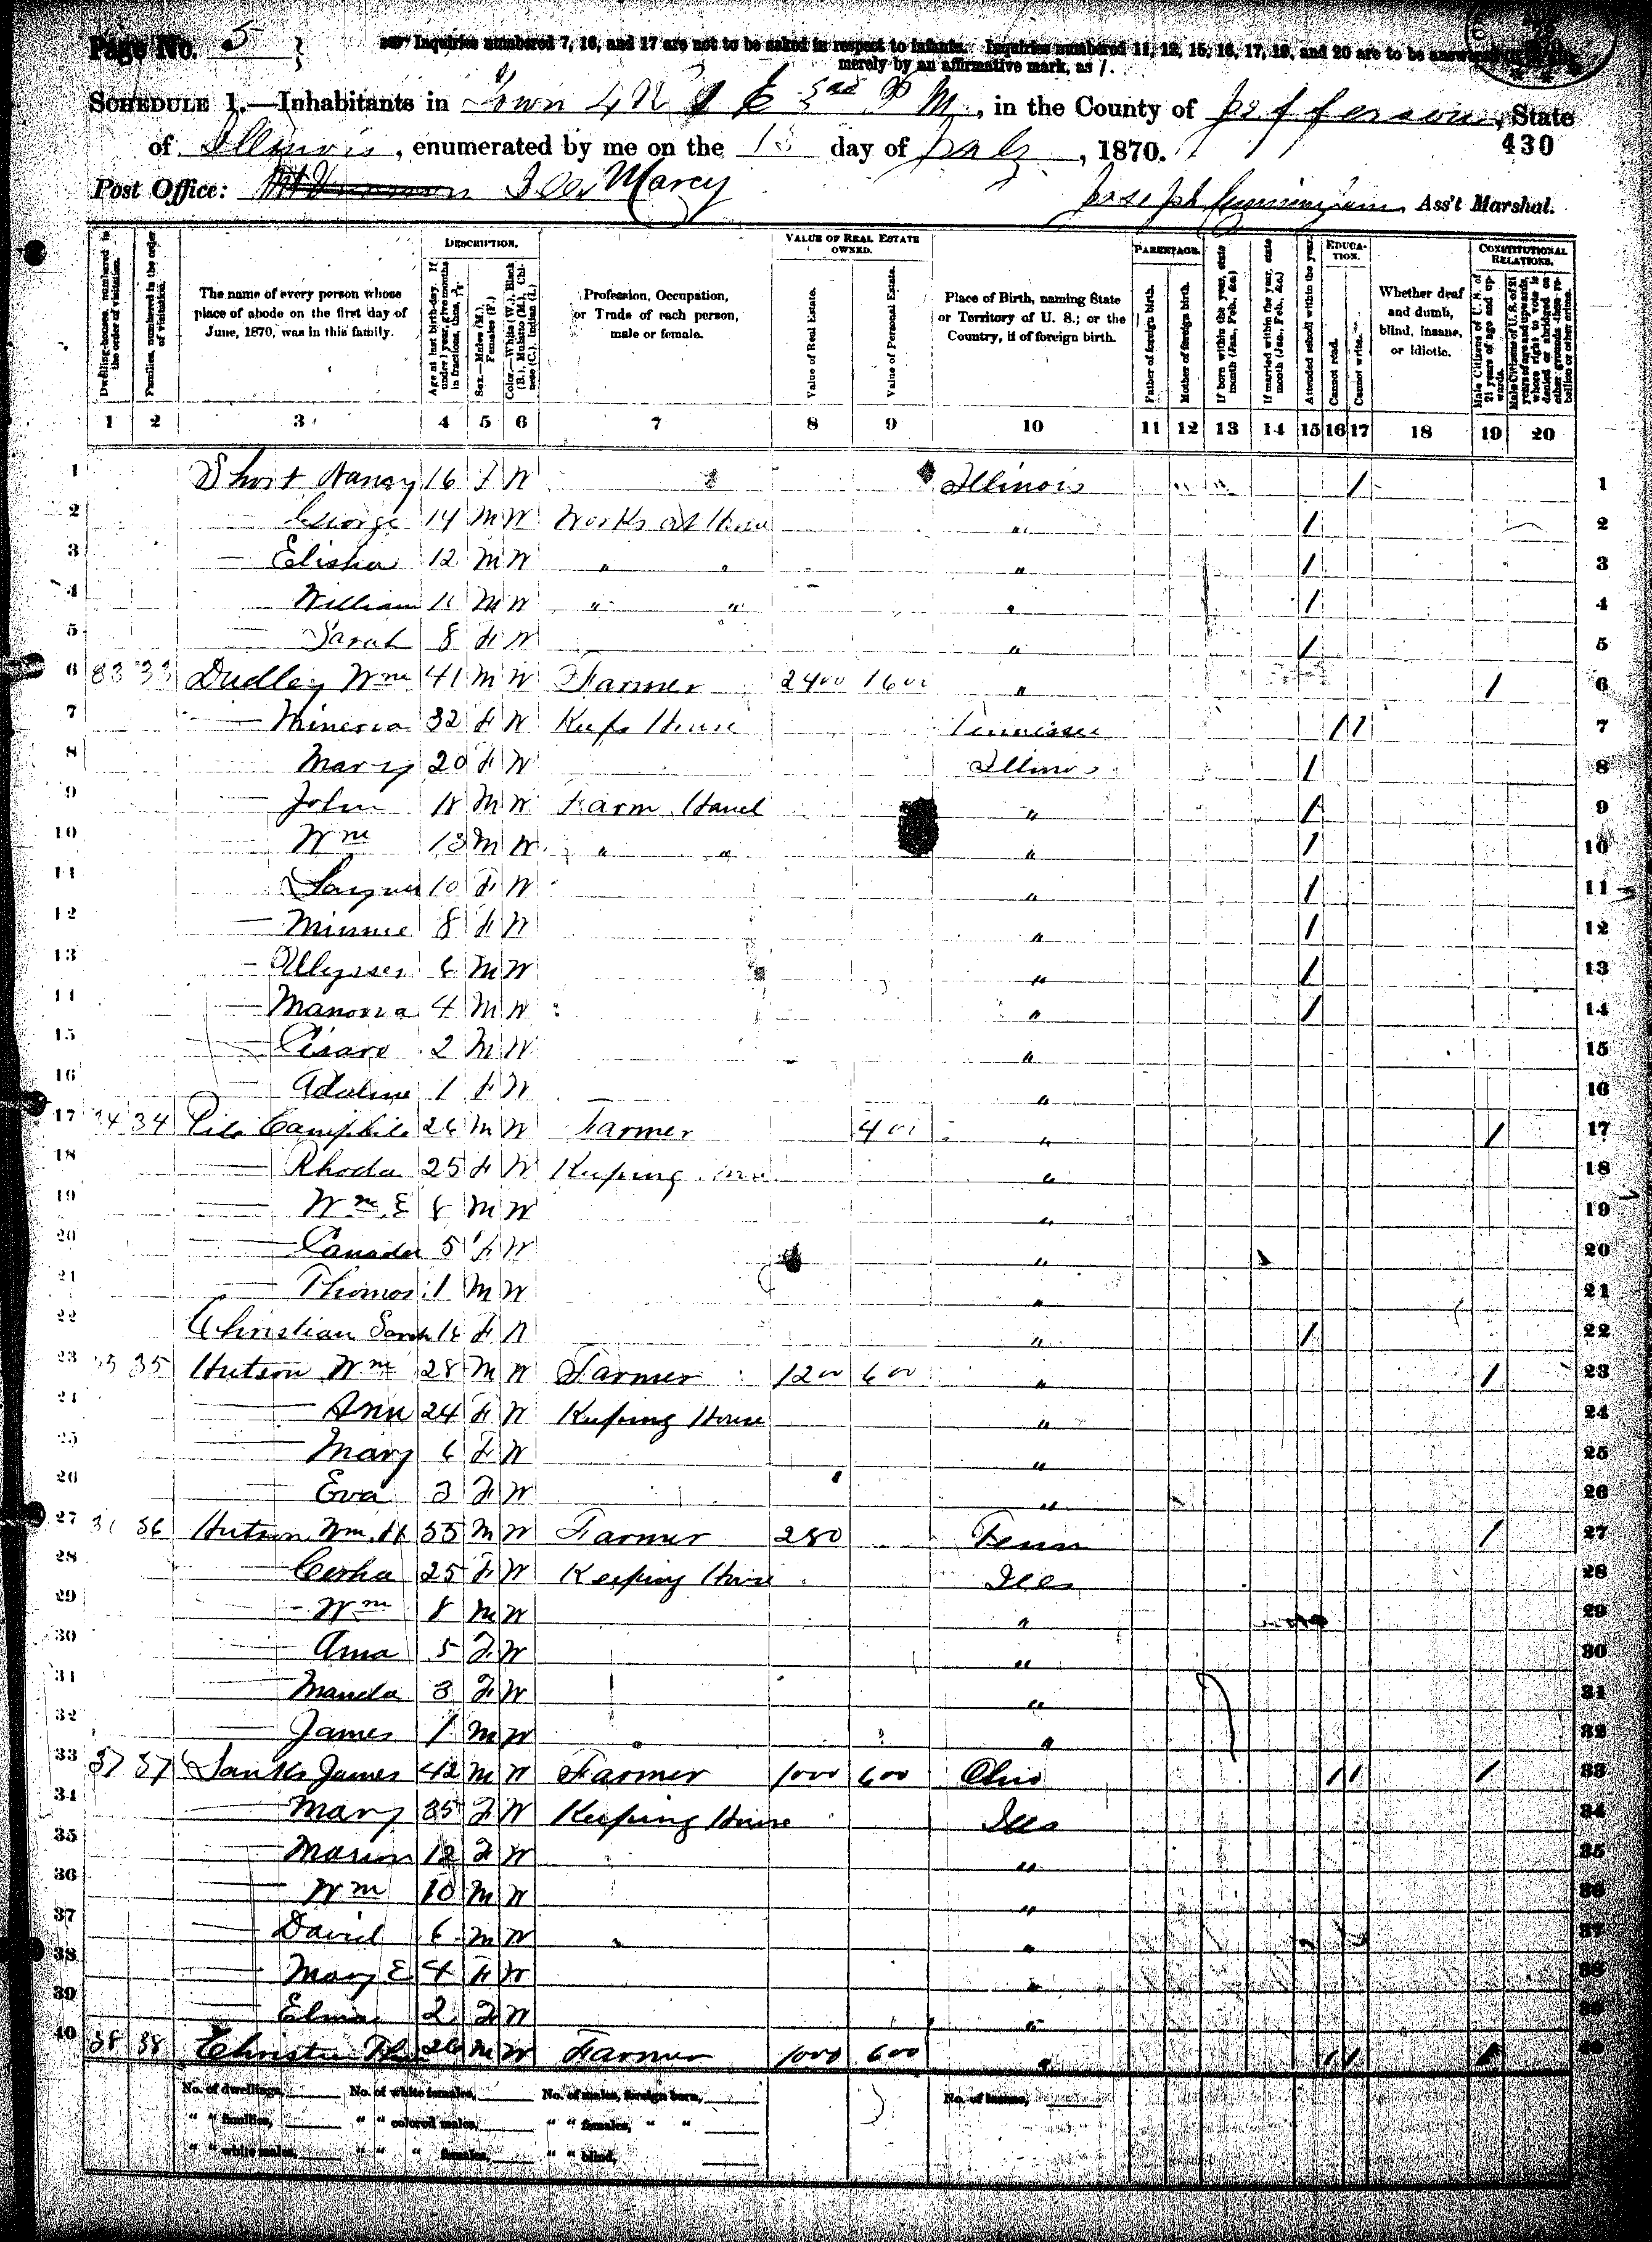 Page No. 5
Inquiries numbered 7, 16, and 17 are not to be asked in respect to infants. Inquiries numbered 11, 12, 15, 16, 17, 19, and 20 are to be answered
merely by an affirmative mark, as /.
SCHEDULE 1.—Inhabitants in Town 4 E 3rd P M, in the County of Jefferson, State
of Illinois, enumerated by me on the day of July, 1870.
430
Post Office: Ills Marcy
Joseph Cunningham, Ass't Marshal.
Dwelling-houses, numbered in the order of visitation.
Families, numbered in the order of visitation.
The name of every person whose place of abode on the first day of June, 1870, was in this family.
DESCRIPTION.
Age at last birth-day. If under 1 year, give months in fractions, thus, 3/12.
Sex.—Males (M.), Females (F.)
Color.—White (W.), Black (B.), Mulatto (M.), Chinese (C.), Indian (I.)
Profession, Occupation, or Trade of each person, male or female.
VALUE OF REAL ESTATE OWNED.
Value of Real Estate.
Value of Personal Estate.
Place of Birth, naming State or Territory of U. S.; or the Country, if of foreign birth.
PARENTAGE.
Father of foreign birth.
Mother of foreign birth.
If born within the year, state month (Jan., Feb., &c.)
If married within the year, state month (Jan., Feb., &c.)
Attended school within the year.
EDUCATION.
Cannot read.
Cannot write.
Whether deaf and dumb, blind, insane, or idiotic.
CONSTITUTIONAL RELATIONS.
Male Citizens of U. S. of 21 years of age and upwards.
Male Citizens of U. S. of 21 years of age and upwards, whose right to vote is denied or abridged on other grounds than rebellion or other crime.
1 2 3 4 5 6 7 8 9 10 11 12 13 14 15 16 17 18 19 20
1 Short Nancy 16 F W Illinois / 1
2 George 14 M W Works at House " / 2
3 — Elisha 12 M W " " " / 3
4 — William 11 M W " " " / 4
5 — Sarah 8 F W " / 5
6 33 33 Dudley Wm 41 M W Farmer 2400 1600 " / 6
7 — Minerva 32 F W Keeps House Tennessee / / 7
8 — Mary 20 F W Illinois / 8
9 — John 18 M W Farm Hand " / 9
10 — Wm 13 M W " " " / 10
11 — 10 F W " / 11
12 — Minnie 8 F W " / 12
13 — Ulysses 6 M W " / 13
14 — Manorra 4 M W " / 14
15 — 2 M W " 15
16 — Adaline 1 F W " 16
17 34 34 26 M W Farmer 400 " / 17
18 — Rhoda 25 F W Keeping " 18
19 — Wm E 8 M W " 19
20 — Canada 5 F W " 20
21 — Thomas 1 M W " 21
22 Christian Sarah F W " / 22
23 35 35 Hutson Wm 28 M W Farmer 1200 600 " / 23
24 — Ann 24 F W Keeping House " 24
25 — Mary 6 F W " 25
26 — Eva 3 F W " 26
27 36 36 Hutson Wm. H 35 M W Farmer 280 Tenn / 27
28 — 25 F W Keeping House Ills 28
29 — Wm 8 M W " 29
30 — Ama 5 F W " 30
31 — Manda 3 F W " 31
32 — James 1 M W " 32
33 37 37 James 42 M W Farmer 1000 600 Ohio / / / 33
34 — Mary 35 F W Keeping House Ills 34
35 — Marion 12 F W " 35
36 — Wm 10 M W " 36
37 — David 6 M W " 37
38 — Mary E 4 F W " 38
39 — Elma 2 F W " 39
40 38 38 26 M W Farmer 1000 600 " / / / 40
No. of dwellings, No. of white females, No. of males, foreign born, No. of insane,
" " families, " " colored males, " " females, " "
" " white males, " " " females, " " blind,